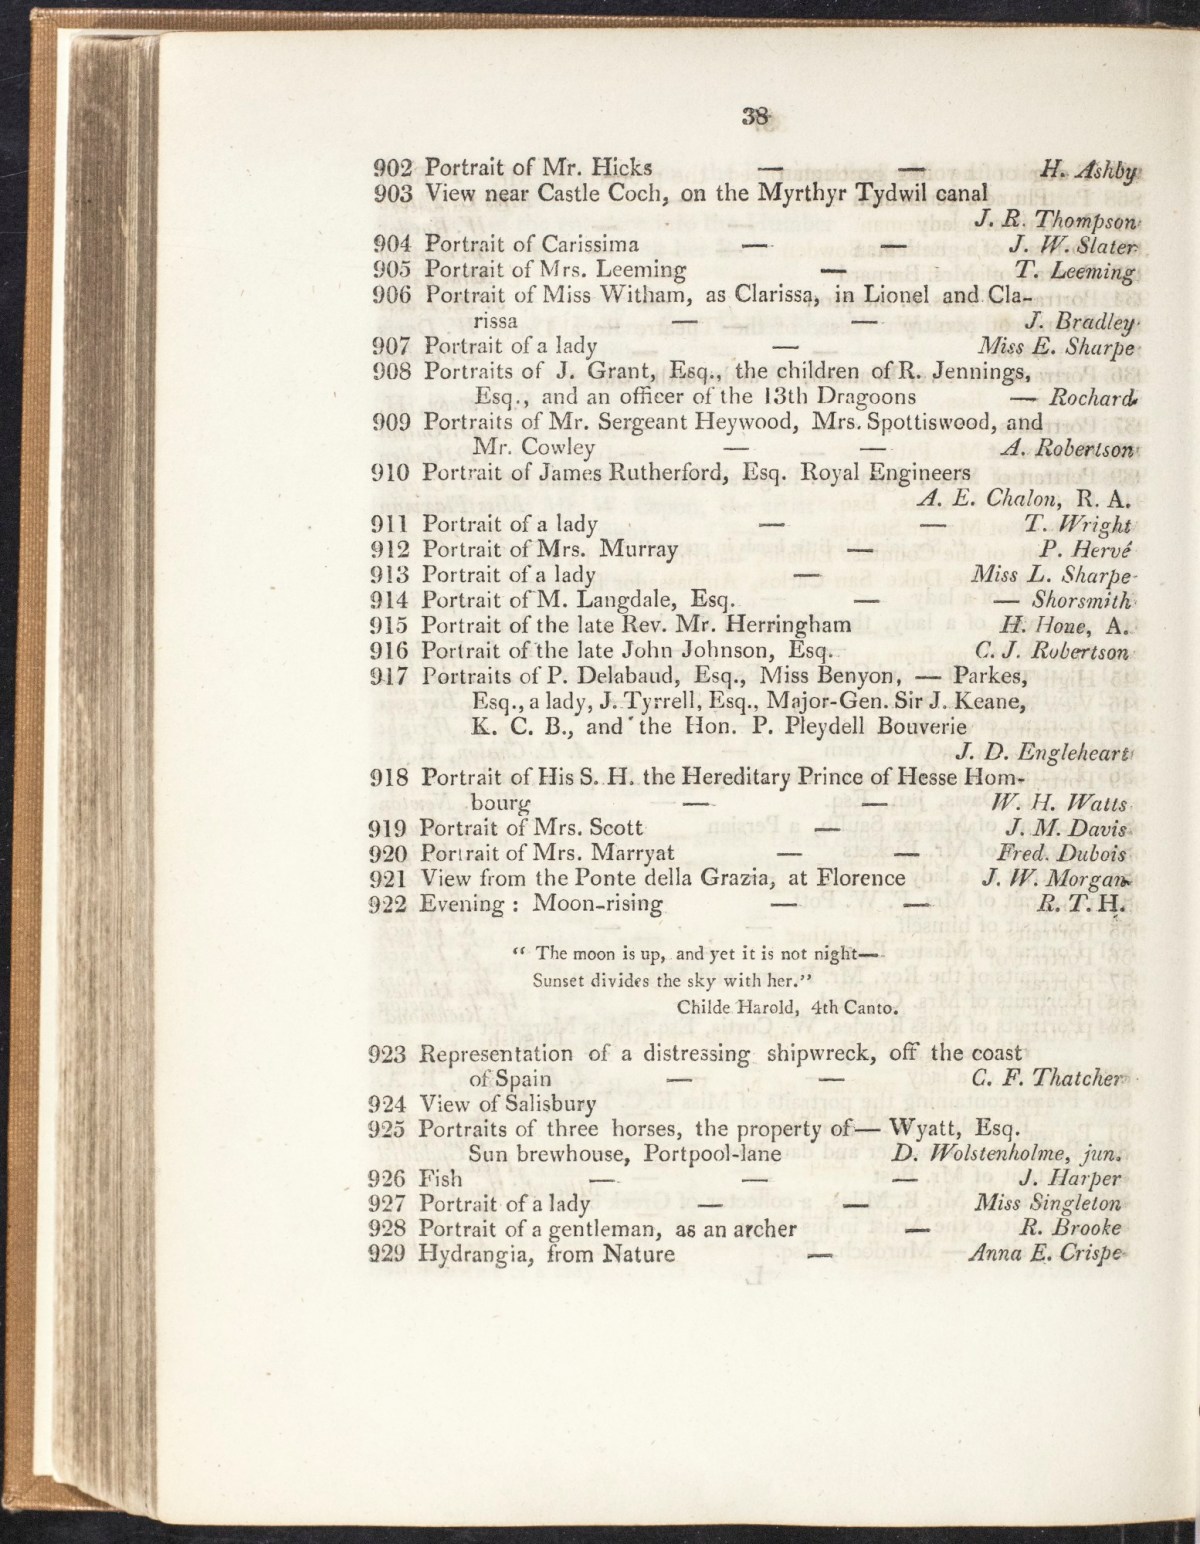 38
902 Portrait of Mr. Hicks — — H. Ashby
903 View near Castle Coch, on the Myrthyr Tydwil canal
J. R. Thompson
904 Portrait of Carissima — — J. W. Slater
905 Portrait of Mrs. Leeming — T. Leeming
906 Portrait of Miss Witham, as Clarissa, in Lionel and Cla-
rissa — — J. Bradley
907 Portrait of a lady — Miss E. Sharpe
908 Portraits of J. Grant, Esq., the children of R. Jennings,
Esq., and an officer of the 13th Dragoons — Rochard
909 Portraits of Mr. Sergeant Heywood, Mrs. Spottiswood, and
Mr. Cowley — — A. Robertson
910 Portrait of James Rutherford, Esq. Royal Engineers
A. E. Chalon, R. A.
911 Portrait of a lady — — T. Wright
912 Portrait of Mrs. Murray — P. Hervé
913 Portrait of a lady — Miss L. Sharpe
914 Portrait of M. Langdale, Esq. — — Shorsmith
915 Portrait of the late Rev. Mr. Herringham H. Hone, A.
916 Portrait of the late John Johnson, Esq. C. J. Robertson
917 Portraits of P. Delabaud, Esq., Miss Benyon, — Parkes,
Esq., a lady, J. Tyrrell, Esq., Major-Gen. Sir J. Keane,
K. C. B., and the Hon. P. Pleydell Bouverie
J. D. Engleheart
918 Portrait of His S. H. the Hereditary Prince of Hesse Hom-
bourg — — W. H. Watts
919 Portrait of Mrs. Scott — J. M. Davis
920 Portrait of Mrs. Marryat — — Fred. Dubois
921 View from the Ponte della Grazia, at Florence J. W. Morgan
922 Evening : Moon-rising — — R. T. H.
“ The moon is up, and yet it is not night—
Sunset divides the sky with her.”
Childe Harold, 4th Canto.
923 Representation of a distressing shipwreck, off the coast
of Spain — — C. F. Thatcher
924 View of Salisbury
925 Portraits of three horses, the property of — Wyatt, Esq.
Sun brewhouse, Portpool-lane D. Wolstenholme, jun.
926 Fish — — — J. Harper
927 Portrait of a lady — — Miss Singleton
928 Portrait of a gentleman, as an archer — R. Brooke
929 Hydrangia, from Nature — Anna E. Crispe